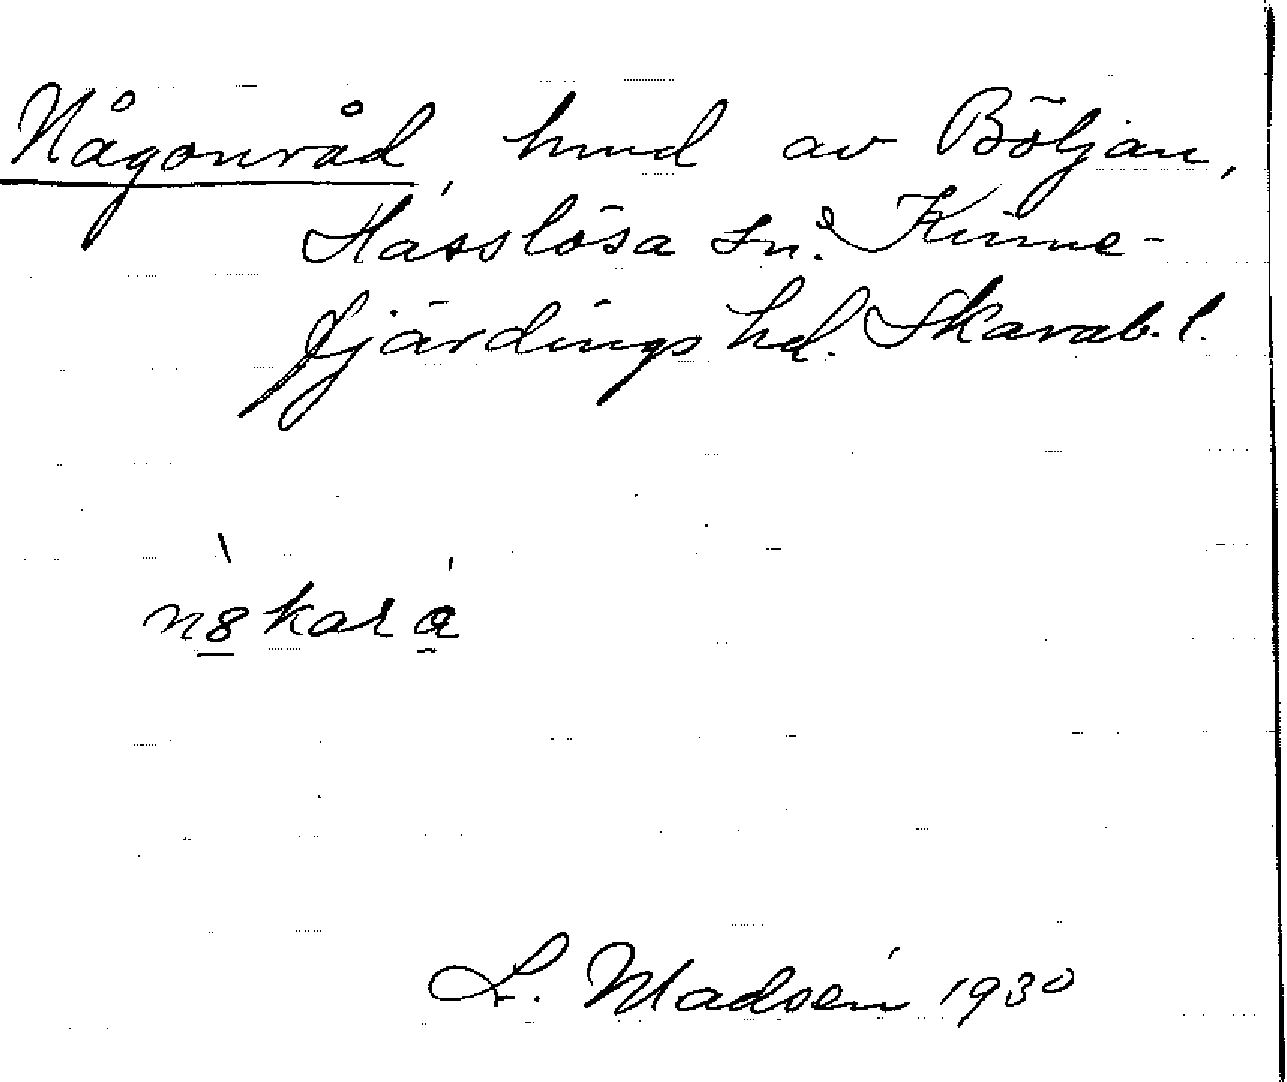 Någonråd, hmd av Böljan,
Hasslösa sn. Kinne-
fjärdings hd. Skarab. l.
L. Madsén 1930